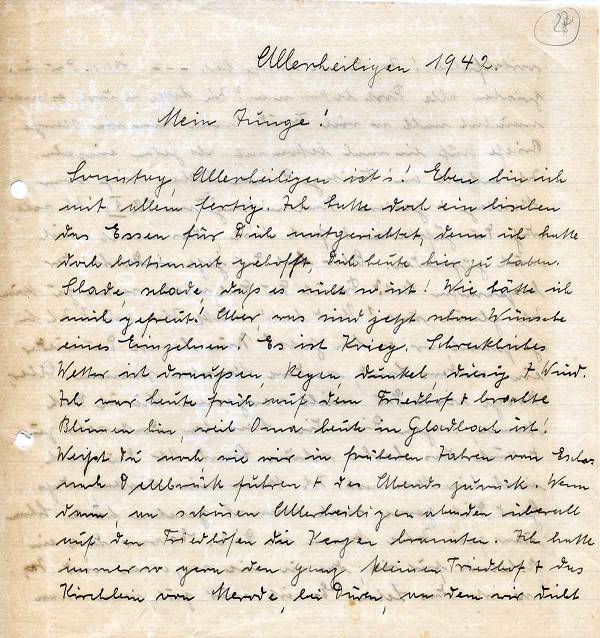 28
Allerheiligen 1942.
Mein Junge!
Sonntag, Allerheiligen ist's! Eben bin ich
mit allem fertig. Ich hatte doch ein bischen
das Essen für Dich mitgerichtet, denn ich hatte
doch bestimmt gehofft, Dich heute hier zu haben.
Schade, schade, daß es nicht so ist! Wie hätte ich
mich gefreut! Aber, was sind jetzt schon Wünsche
eines Einzelnen! Es ist Krieg. Schreckliches
Wetter ist draußen, Regen, dunkel, diesig + Wind.
Ich war heute früh auf dem Friedhof + brachte
Blumen hin, weil Oma heute in Gladbach ist!
Weißt Du noch, wie wir in früheren Jahren von
nach Dellbrück fuhren + des Abends zurück. Wenn
dann, an schönen Allerheiligenabenden überall
auf den Friedhöfen die Kerzen brannten. Ich hatte
immer so gern den ganz kleinen Friedhof + das
Kirchlein von Merode, bei Düren, an dem wir dicht